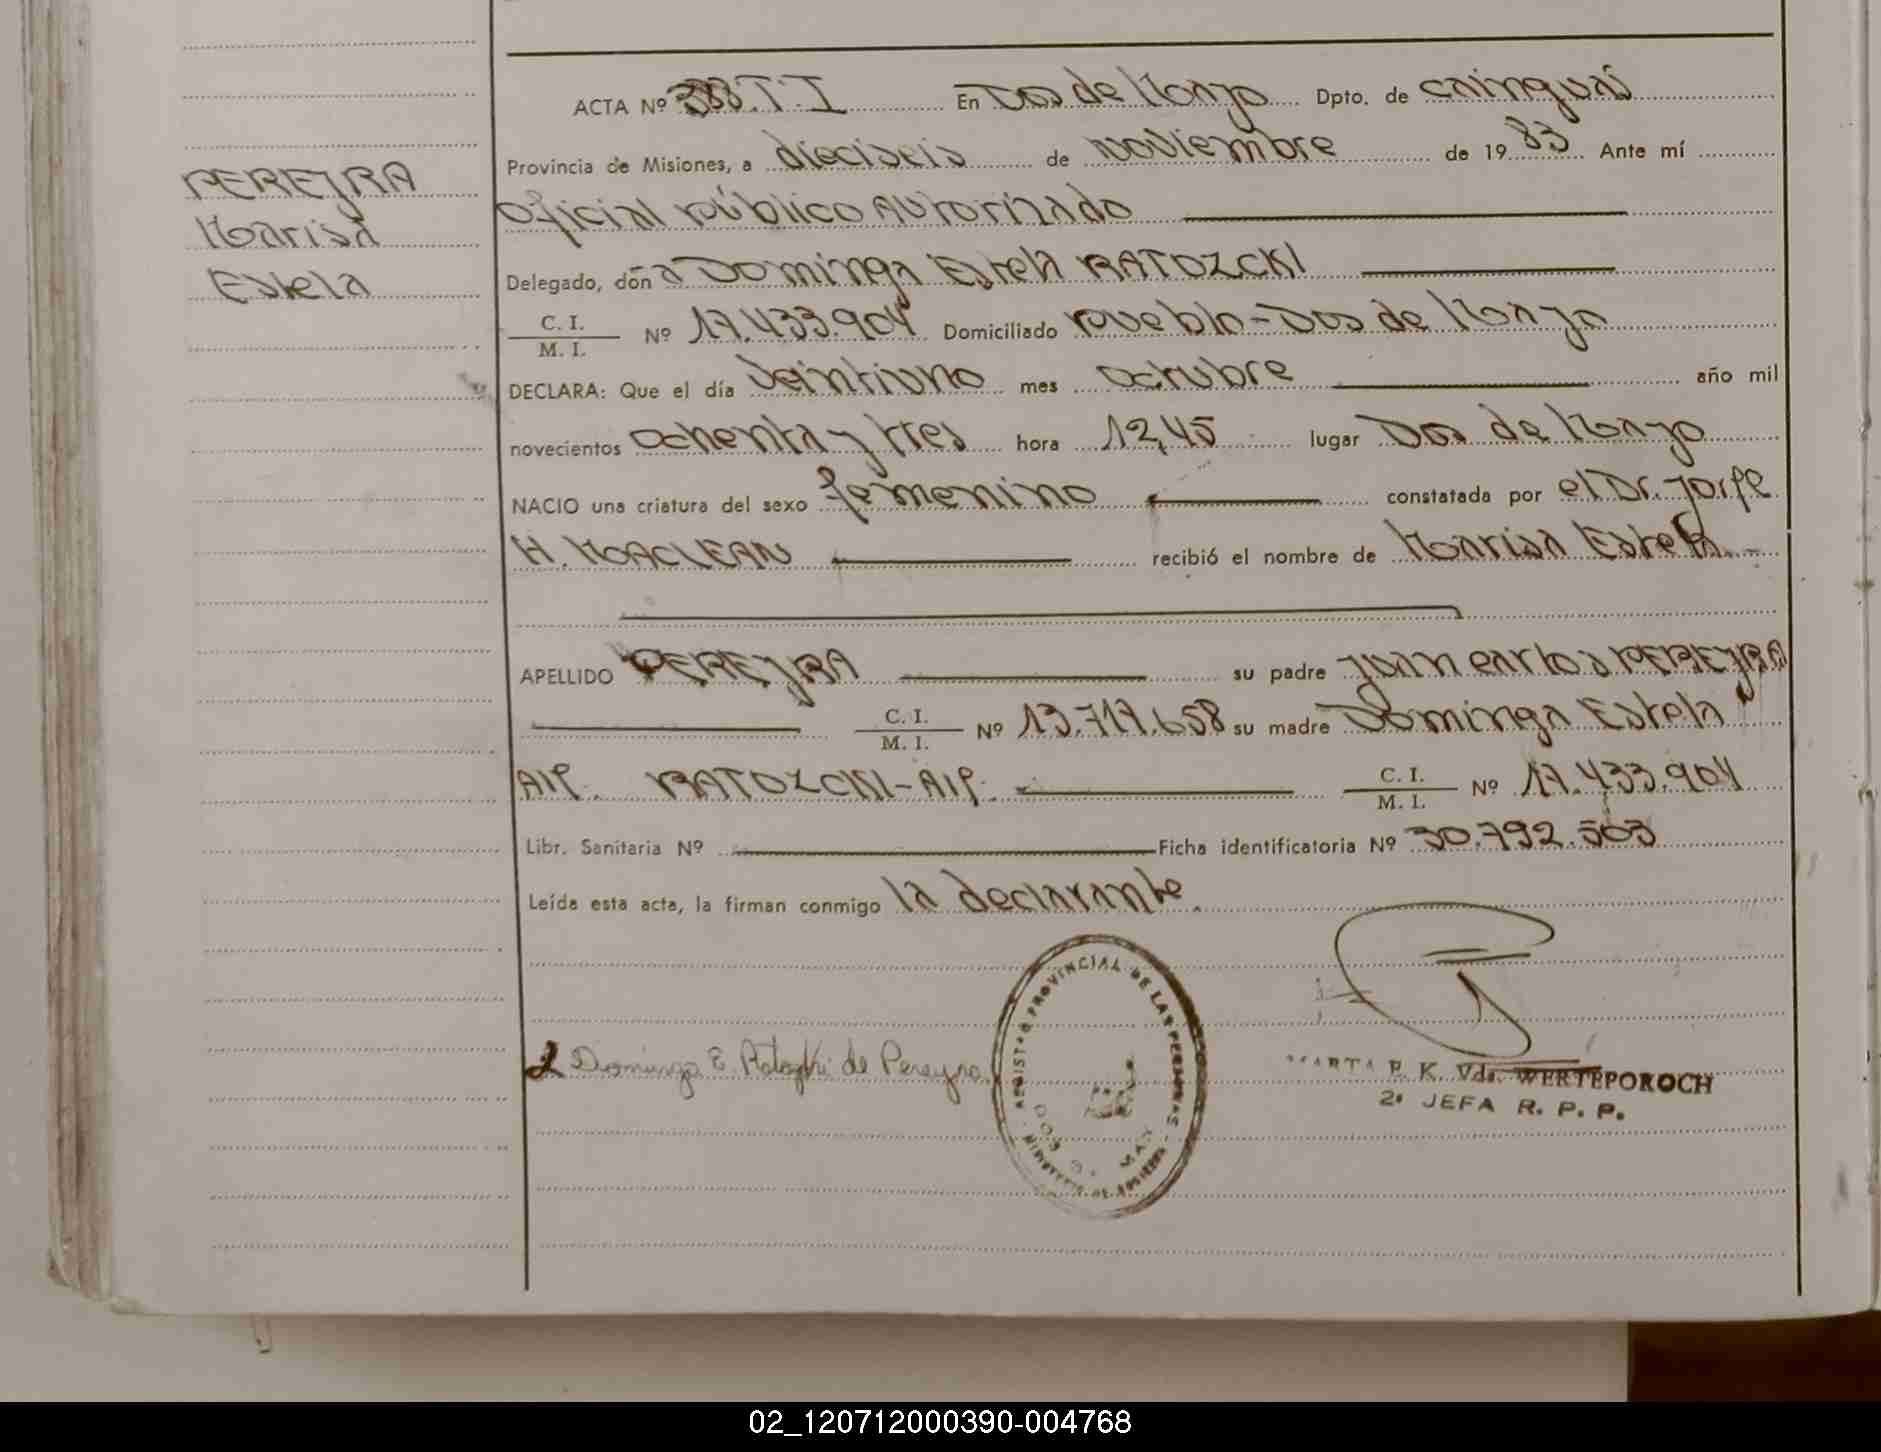 ACTA Nº 388.T.I En Dos de Mayo Dpto. de Cainguás
Provincia de Misiones, a dieciseis de noviembre de 1983 Ante mí
Oficial público Autorizado
PEREYRA
Marisa
Estela
Delegado, doña Dominga Estela RATOZCKI
C. I.
M. I. Nº 17.433.904 Domiciliado pueblo-Dos de Mayo
DECLARA: Que el día veintiuno mes octubre año mil
novecientos ochenta y tres hora 12,45 lugar Dos de Mayo
NACIO una criatura del sexo femenino constatada por el Dr. Jorge
H. MACLEAN recibió el nombre de Marisa Estela.-
APELLIDO PEREYRA su padre Juan Carlos PEREYRA
C. I.
M. I. Nº 13.717.658 su madre Dominga Estela
RATOZCKI- C. I.
M. I. Nº 17.433.904
Libr. Sanitaria Nº Ficha identificatoria Nº 30.792.503
Leída esta acta, la firman conmigo la declarante.
REGISTRO PROVINCIAL DE LAS PERSONAS
MINISTERIO DE GOBIERNO
DOS DE MAYO
Dominga E. Ratozki de Pereyra
MARTA P. K. Vda. WERTEPOROCH
2ª JEFA R. P. P.
02_120712000390-004768